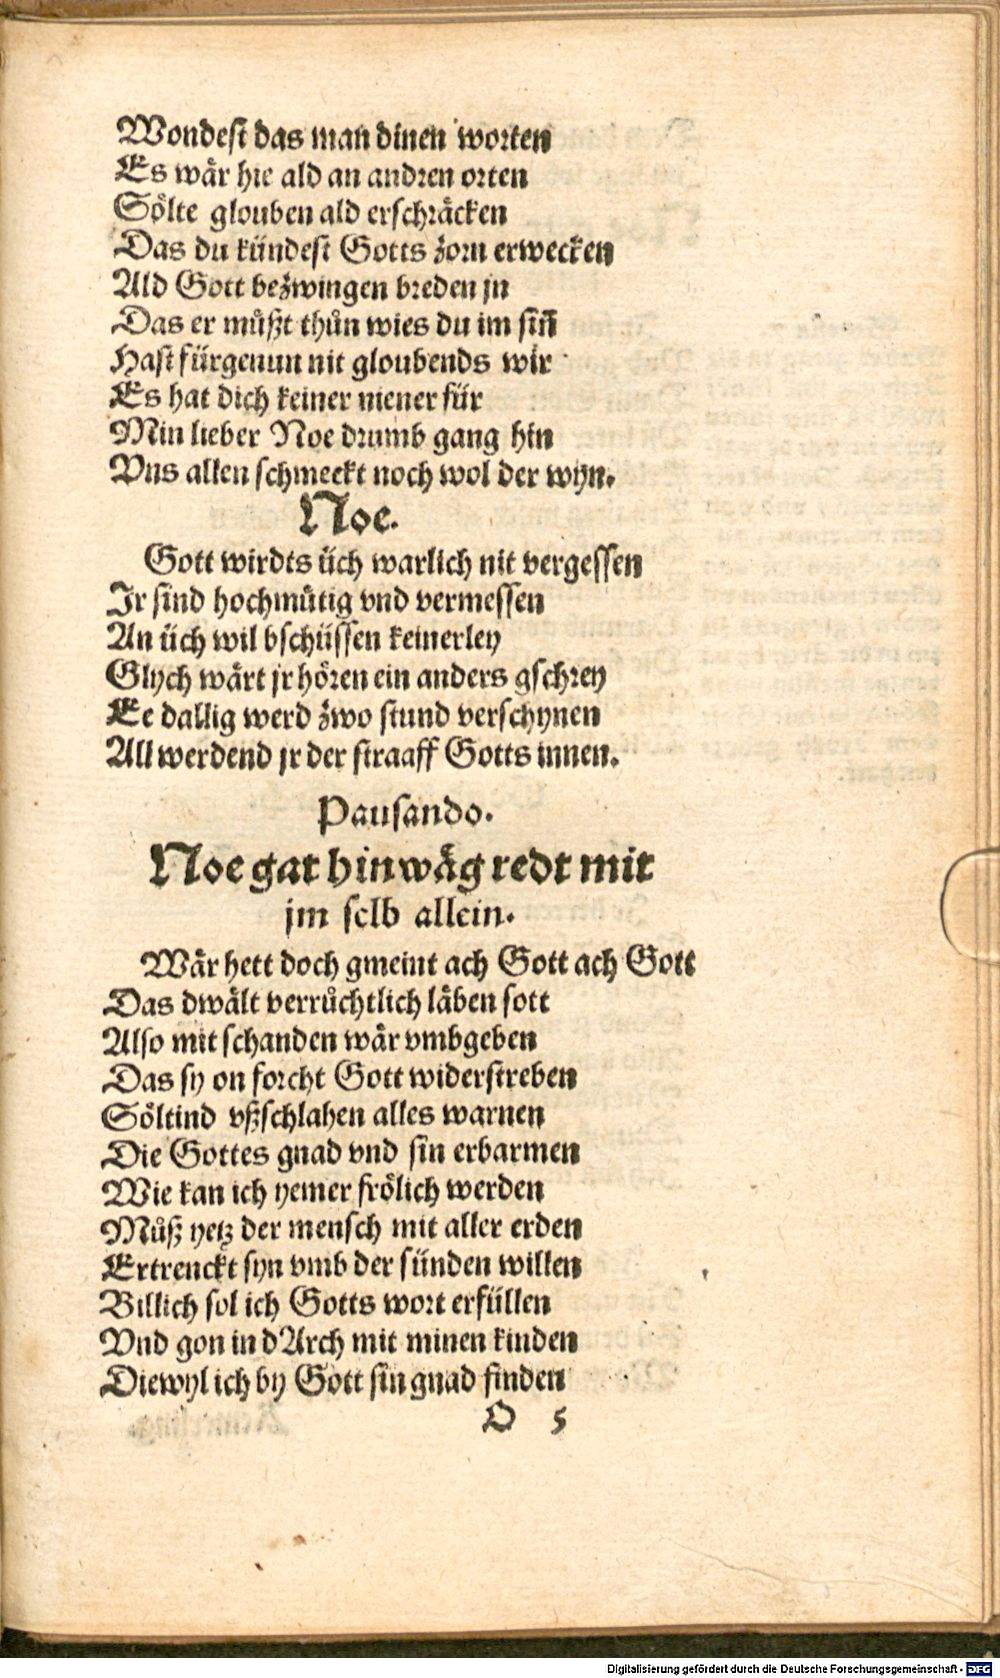 Wondest das man dinen worten
Es wår hie ald an andren orten
Sölte glouben ald erschråcken
Das du kündest Gotts zorn erwecken
Ald Gott bezwingen breden jn
Das er můßt thůn wies du im siñ
Hast fürgenun nit gloubends wir
Es hat dich keiner niener für
Min lieber Noe drumb gang hin
Vns allen schmeckt noch wol der wyn.
Noe.
Gott wirdts üch warlich nit vergessen
Jr sind hochmütig vnd vermessen
An üch wil bschüssen keinerley
Glych wärt jr hören ein anders gschrey
Ee dallig werd zwo stund verschynen
All werdend jr der straaff Gotts innen.
Pausando.
Noe gat hinwäg redt mit
jm selb allein.
Wår hett doch gmeint ach Gott ach Gott
Das dwält verrůchtlich läben sott
Also mit schanden wår vmbgeben
Das sy on forcht Gott widerstreben
Söltind vßschlahen alles warnen
Die Gottes gnad vnd sin erbarmen
Wie kan ich yemer frölich werden
Můß yetz der mensch mit aller erden
Ertrenckt syn vmb der sünden willen
Billich sol ich Gotts wort erfüllen
Vnd gon in d'Arch mit minen kinden
Diewyl ich by Gott sin gnad finden
O 5
Digitalisierung gefördert durch die Deutsche Forschungsgemeinschaft - DFG